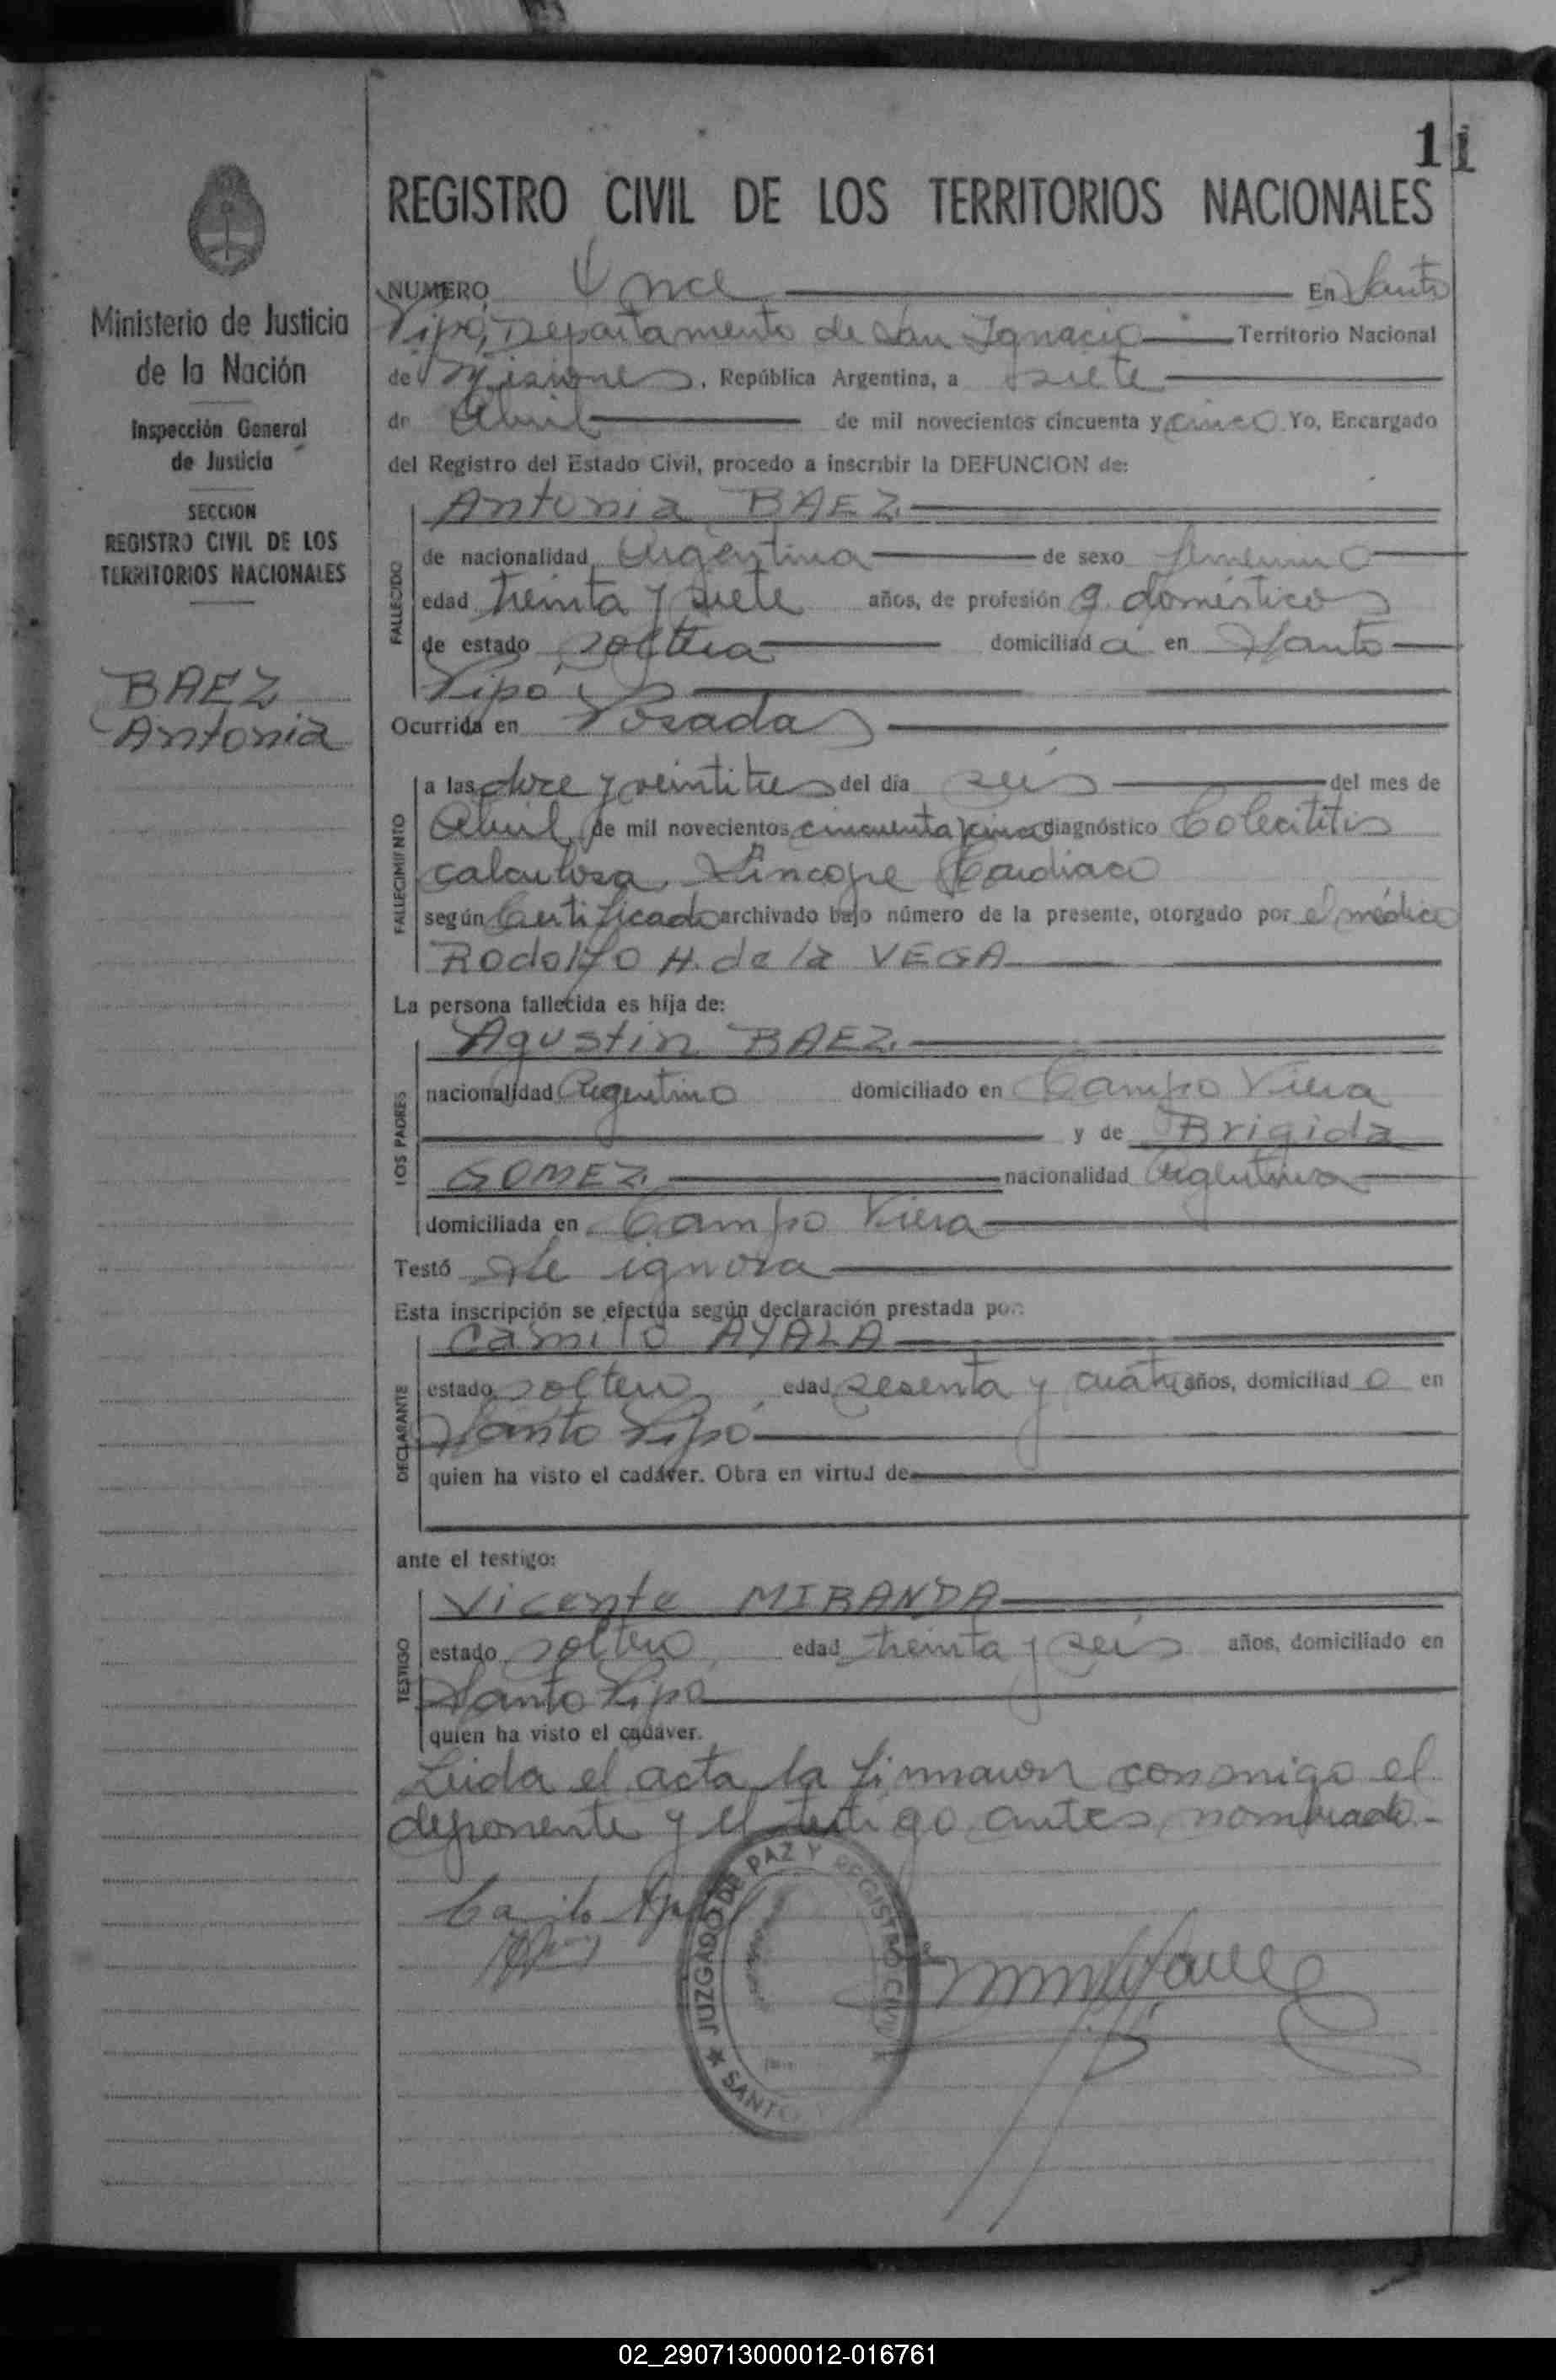 11
REGISTRO CIVIL DE LOS TERRITORIOS NACIONALES
Ministerio de Justicia
de la Nación
Inspección General
de Justicia
SECCION
REGISTRO CIVIL DE LOS
TERRITORIOS NACIONALES
BAEZ
Antonia
NUMERO Once En Santo
Pipó, Departamento de San Ignacio Territorio Nacional
de Misiones, República Argentina, a siete
de Abril de mil novecientos cincuenta y cinco Yo, Encargado
del Registro del Estado Civil, procedo a inscribir la DEFUNCION de:
FALLECIDO
Antonia BAEZ
de nacionalidad Argentina de sexo femenino
edad treinta y siete años, de profesión q. domésticos
de estado soltera domiciliada en Santo
Pipó
Ocurrida en Posadas
FALLECIMIENTO
a las doce y veintitres del día seis del mes de
Abril de mil novecientos cincuenta y cinco diagnóstico Colecititis
calculosa. Síncope Cardiaco
según Certificado archivado bajo número de la presente, otorgado por el médico
Rodolfo H. de la VEGA
La persona fallecida es hija de:
LOS PADRES
Agustin BAEZ
nacionalidad Argentino domiciliado en Campo Viera
y de Brigida
GOMEZ nacionalidad Argentina
domiciliada en Campo Viera
Testó Se ignora
Esta inscripción se efectúa según declaración prestada por:
DECLARANTE
Camilo AYALA
estado soltero edad sesenta y cuatro años, domiciliado en
Santo Pipó
quien ha visto el cadáver. Obra en virtud de
ante el testigo:
TESTIGO
Vicente MIRANDA
estado soltero edad treinta y seis años, domiciliado en
Santo Pipó
quien ha visto el cadáver.
Leida el acta la firmaron conmigo el
deponente y el testigo antes nombrado.-
Camilo Ayala
JUZGADO DE PAZ Y REGISTRO CIVIL
SANTO
02_290713000012-016761